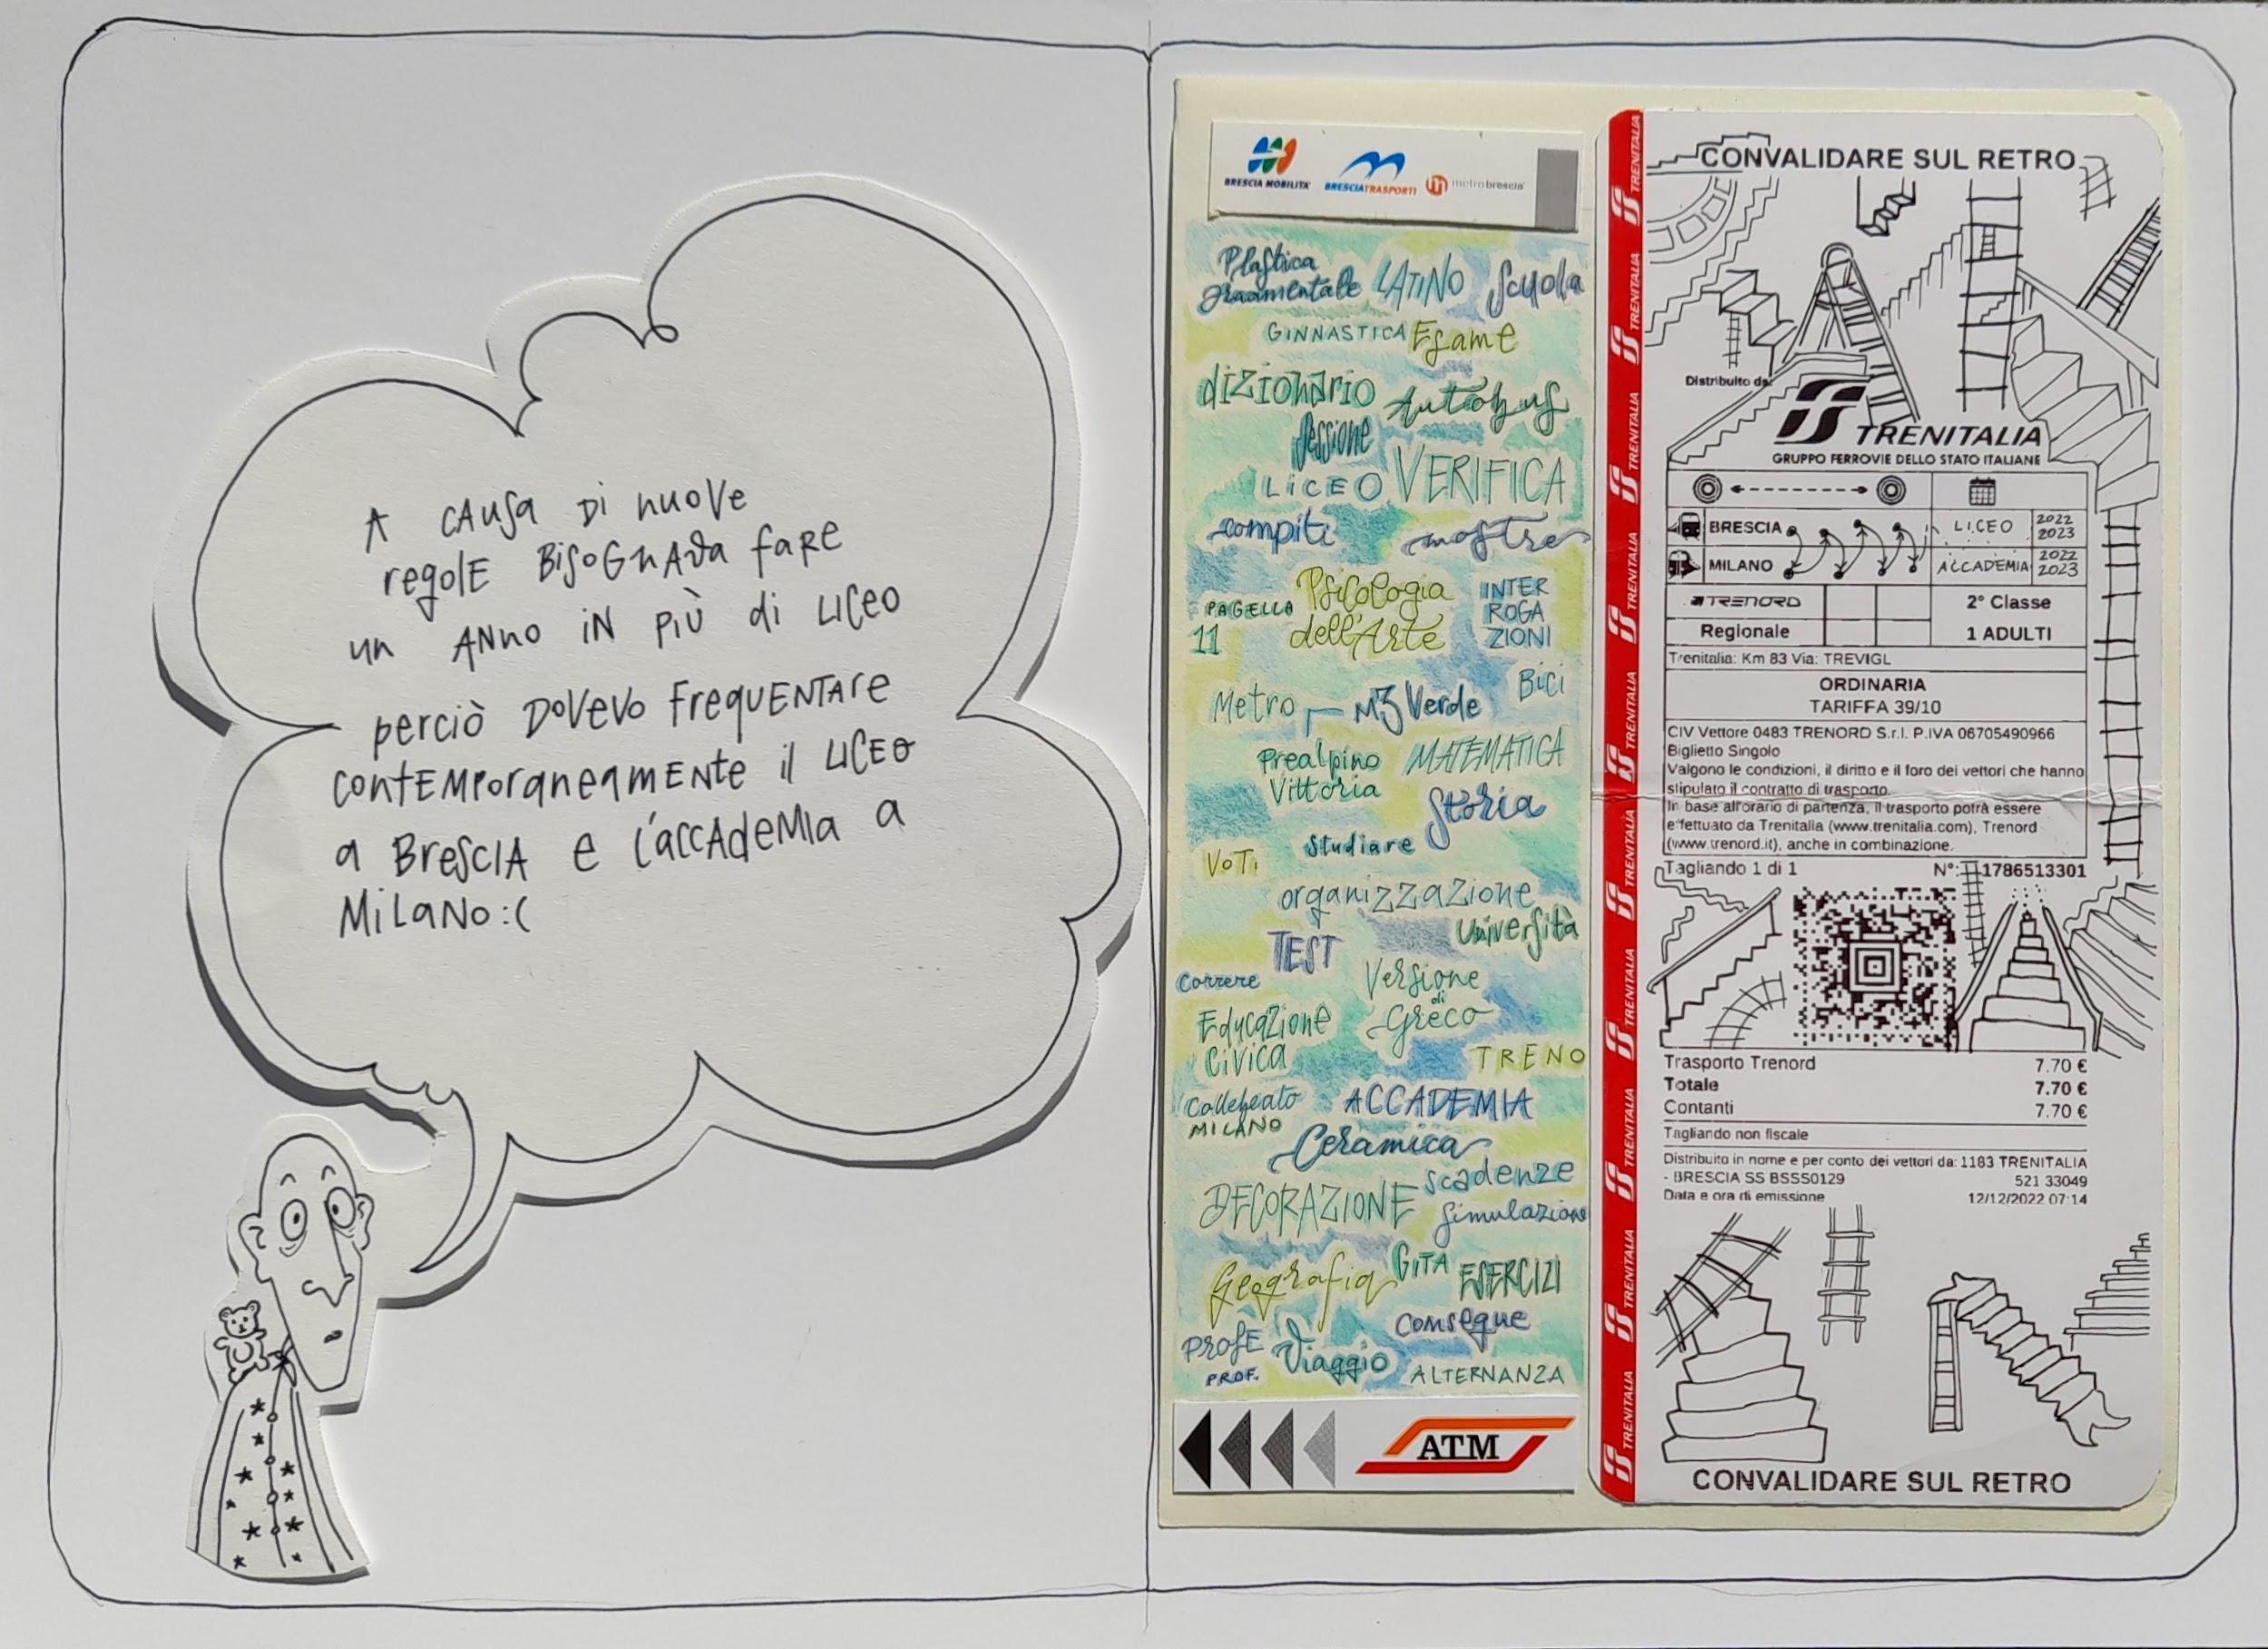 A CAUSA DI NUOVE
REGOLE BISOGNAVA FARE
UN ANNO IN PIÙ DI LICEO
PERCIÒ DOVEVO FREQUENTARE
CONTEMPORANEAMENTE IL LICEO
A BRESCIA E L'ACCADEMIA A
MILANO :(
BRESCIA MOBILITA'
BRESCIATRASPORTI
metrobrescia
Plastica
Ornamentale
LATINO
Scuola
GINNASTICA
Esame
dizionario
Autobus
Sessione
LICEO
VERIFICA
compiti
mostre
PAGELLA
11
Psicologia
dell'Arte
INTER
ROGA
ZIONI
Metro
M3 Verde
Bici
Prealpino
Vittoria
MATEMATICA
Storia
studiare
VOTI
organizzazione
Università
TEST
Correre
Versione
di
Greco
Educazione
Civica
TRENO
Collebeato
MILANO
ACCADEMIA
Ceramica
scadenze
DECORAZIONE
simulazione
Geografia
GITA
ESERCIZI
consegne
PROFE
PROF.
Viaggio
ALTERNANZA
ATM
TRENITALIA
TRENITALIA
TRENITALIA
TRENITALIA
TRENITALIA
TRENITALIA
TRENITALIA
TRENITALIA
TRENITALIA
TRENITALIA
CONVALIDARE SUL RETRO
Distribuito da:
TRENITALIA
GRUPPO FERROVIE DELLO STATO ITALIANE
BRESCIA LICEO 2022 2023
MILANO ACCADEMIA 2022 2023
TRENORD 2° Classe
Regionale 1 ADULTI
Trenitalia: Km 83 Via: TREVIGL
ORDINARIA
TARIFFA 39/10
CIV Vettore 0483 TRENORD S.r.l. P.IVA 06705490966
Biglietto Singolo
Valgono le condizioni, il diritto e il foro dei vettori che hanno
stipulato il contratto di trasporto.
In base all'orario di partenza, il trasporto potrà essere
effettuato da Trenitalia (www.trenitalia.com), Trenord
(www.trenord.it), anche in combinazione.
Tagliando 1 di 1 N°: 1786513301
Trasporto Trenord 7.70 €
Totale 7.70 €
Contanti 7.70 €
Tagliando non fiscale
Distribuito in nome e per conto dei vettori da: 1183 TRENITALIA
- BRESCIA SS BSSS0129 521 33049
Data e ora di emissione 12/12/2022 07:14
CONVALIDARE SUL RETRO